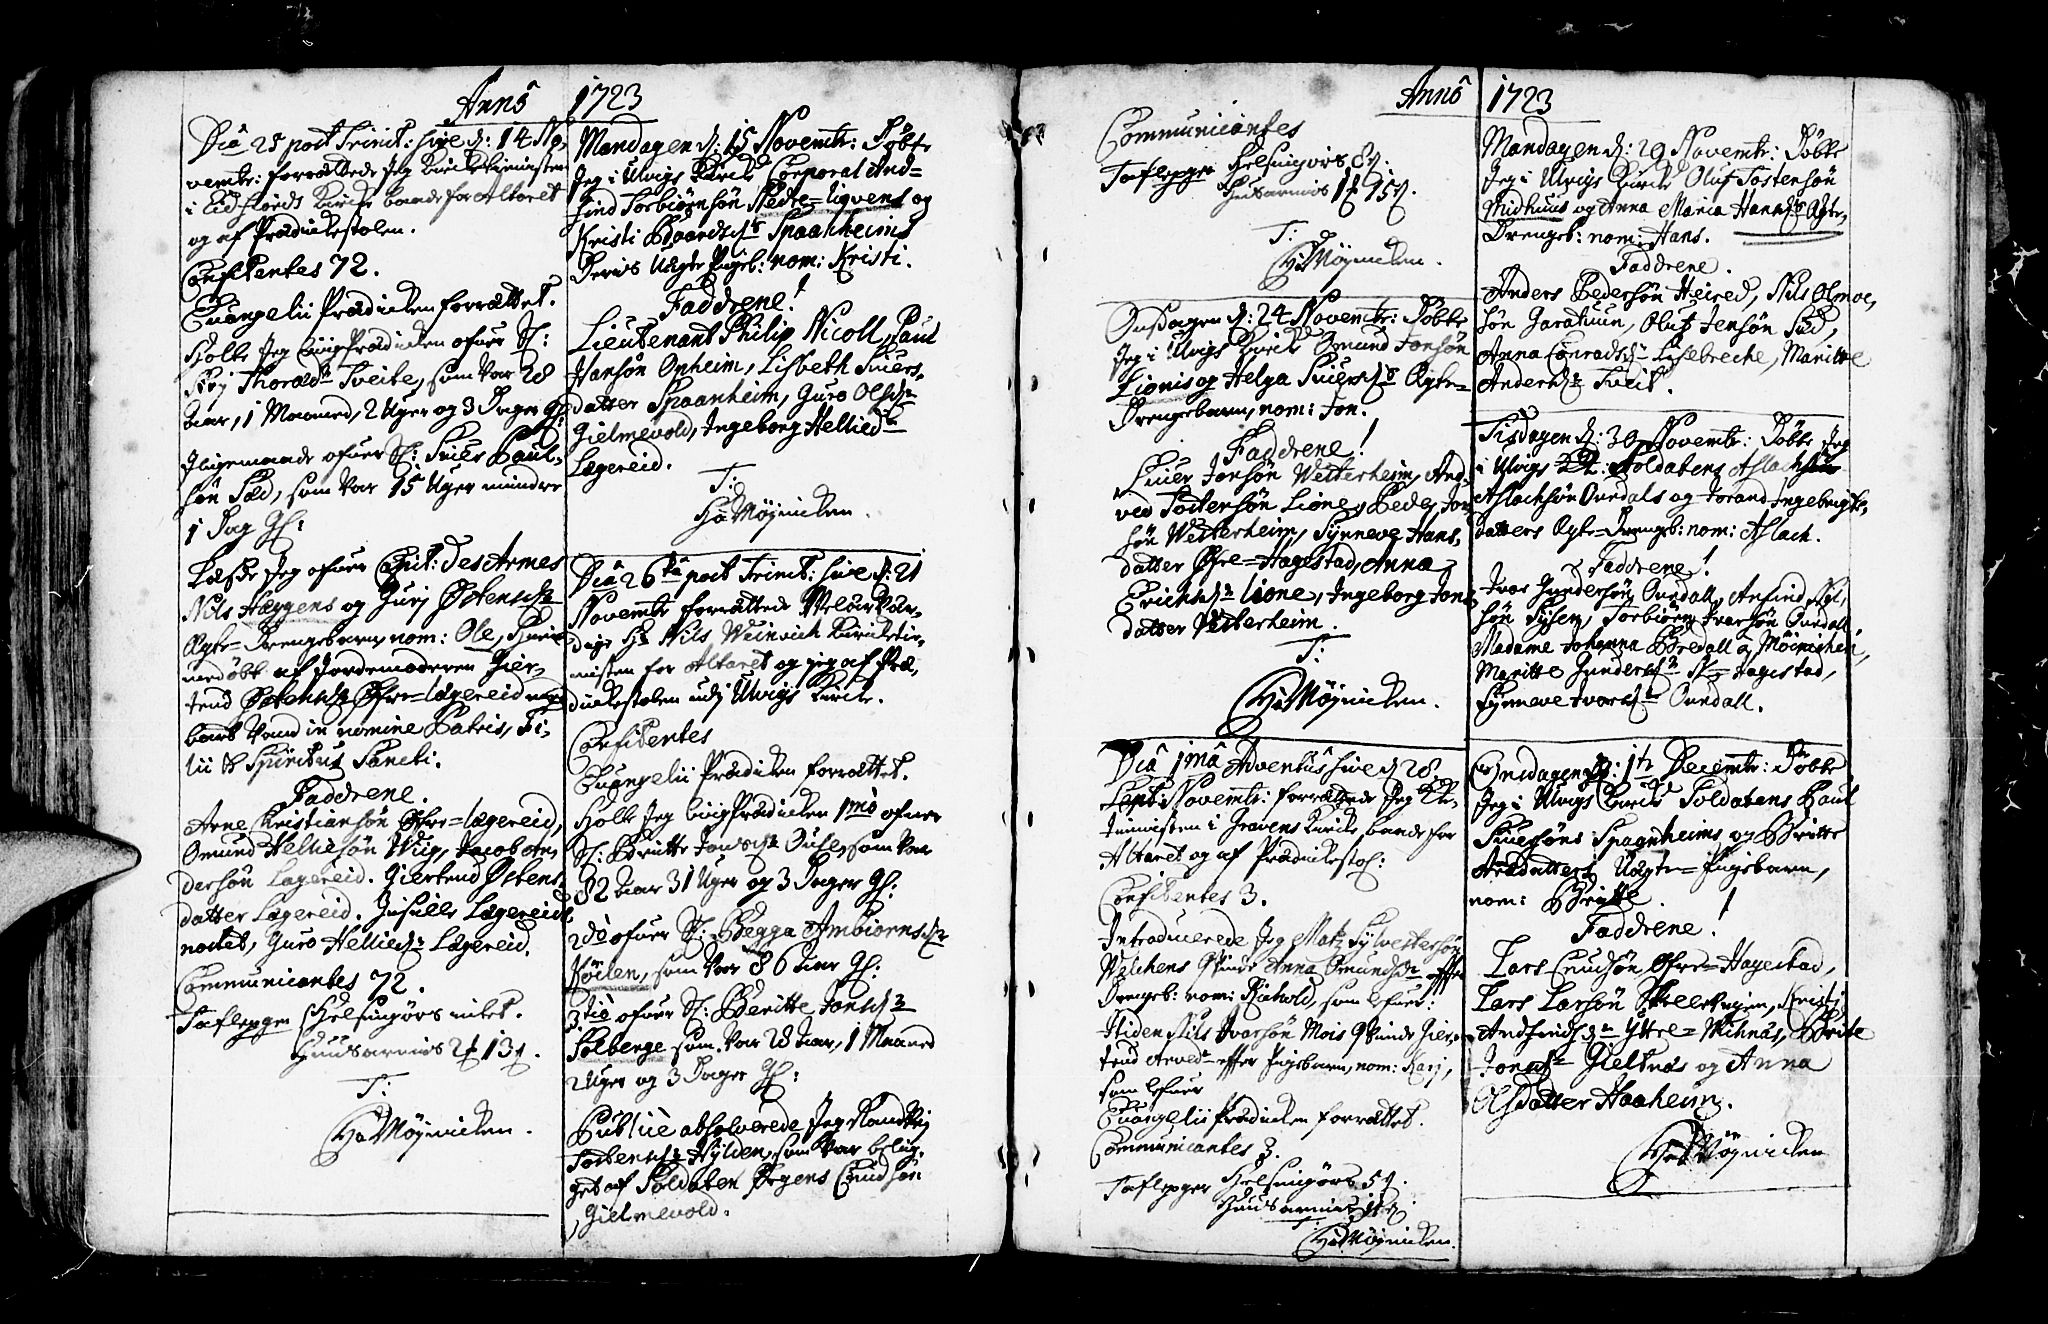 Annô 1723
Diâ 25 post Trinit: sive d: 14 No-
vembr: forrættede Jeg Kirketienisten
i Eidfiords Kirke baade for Altaret
og af Prædickestolen.
Confitentes 72.
Evangelii Prædicken forrættet.
Holte Jeg Liigprædicken ofver Sl:
Thoralds Tveite, som var 28
Aar, 1 Maaned, 2 Uger og 3 Dager Gl:
Iligemaade ofver Sl: Siver Paul-
søn Sæd, som var 15 Uger mindre
1 Dag Gl:
Læste Jeg ofver Capit: Des Armes
Nils Hæggens og Guri Østensdr
Ægte-Drengebarn, nom: Ole,
af Jordemoderen Gier-
trud Østensdr Øfre-Lægereid
Vand in nomine Patris, Fi-
lii & Spiritus Sancti.
Faddrene.
Arne Christiansøn Øfre-Lægereid,
Omund Helliesøn Wiig, Jacob An-
dersøn Lægereid. Giertrud Østens-
datter Lægereid. Lægereid
Guro Helliedr Lægereid.
Communicantes 72.
Taflepger Helsingørs intet.
Huusarmis 2 13
T:
HaMøynichen.
Mandagen d: 15 Novembr: Døbte
Jeg i Ulvigs Kirke Corporal And-
find Torbiørnsøn Nedre-Liqvens og
Kristi Baardsdrs Spaanheims
Deris Uægte Pigeb: nom: Kristi.
Faddrene!
Lieutenant Philip Nicoll, Paul
Hansøn Opheim, Lisbeth Sivers-
datter Spaanheim, Guro Olsdr
Gielmevold, Ingeborg Helliedr
Lægereid.
T:
HaMøynichen.
Diâ 26ta post Trinit: sive d: 21
Novembr forrættede
Hr Nils Weinwich Kirketie-
nisten for Altaret og jeg af Præ-
dickestolen udj Ulvigs Kirke.
Confitentes
Evangelii Prædicken forrættet.
Holte Jeg Liigprædicken 1mô ofver
Sl: Britte som var
82 Aar 31 Uger og 3 Dager Gl:
2dô ofver Sl: Begga Ambiørnsdr
som var 86 Aar Gl:
3tiô ofver Sl: Beritte Jonsdr
Solberge som var 28 Aar, 1 Maaned
2 Uger og 3 Dager Gl:
Publice absolverede Jeg Randvej
Tostensdr Hylden, som var belig-
get af Soldaten Ørgens Cnudsøn
Gielmevold.
Annô 1723
Communicantes
Taflepger Helsingørs 8
Huusarmis 1 15
T:
HaMøynichen.
Onsdagen d: 24 Novembr: Døbte
Jeg i Ulvigs Kirke Omund Jonsøn
Lionis og Helga Siversdrs Ægte-
Drengebarn, nom: Jon.
Faddrene!
Siver Jonsøn Westerheim, And-
ved Tostensøn Lione, Peder Jon-
søn Westerheim, Synneve Hans-
datter Øfre-Hagestad, Anna
Erichsdr Lione, Ingeborg Jons-
datter Westerheim.
T:
HaMøynichen.
Diâ 1mâ Adventûs sive d: 28
Novembr: forrættede Jeg Kir-
tienisten i Gravens Kirke baade for
Altaret og af Prædickestol:
Confitentes 3.
Introducerede Jeg Matz Sylvestersøn
Qvinde Anna Omundsdr effter
Drengeb: nom:
Nils Ivarsøn Mois Qvinde Gier-
trud effter Pigebarn, nom: Kari,
som
Evangelii Prædicken forrættet.
Communicantes 3.
Taflepger Helsingørs 5
Huusarmis
T:
HaMøynichen.
Mandagen d: 29 Novembr: Døbte
Jeg i Ulvigs Kirke Oluf Tostensøn
Midhuus og Anna Maria Hansdrs Ægte,
Drengeb: nom: Hans.
Faddrene.
Anders Pedersøn Heired, Nils Olmoe-
søn Garatuun, Oluf Jensøn Sæd,
Anna Conradsdr Lysebrecke, Maritte
Andersdr Tveit.
Tisdagen d: 30 Novembr: Døbte Jeg
i Ulvigs K: Soldatens Aslach
Aslachsøn Ourdals og Jorand Ingebrigts-
datters Ægte-Drengeb: nom: Aslach.
Faddrene!
Ivar Gundersøn Ourdall, Anfind Nil-
søn Sysen, Torbiørn Ivarsøn Ourdall
Madame Johanna Bredall a Møinichen,
Maritte Gundersdr N-Hagestad,
Synneve Ivarsdr Ourdall.
Onsdagen d: 1te Decembr: Døbte
Jeg i Ulvigs Kirke Soldatens Paul
Siversøns Spaanheims og Britte
Arnedatters Uægte-Pigebarn,
nom: Britte.
Faddrene!
Lars Cnudsøn Øfre-Hagestad,
Lars Larsøn Kristi
Andfindsdr Yttre-Wiknæs, Britte
Jonsdr Gieltnæs og Anna
Olsdatter Haaheim.
HaMøynichen